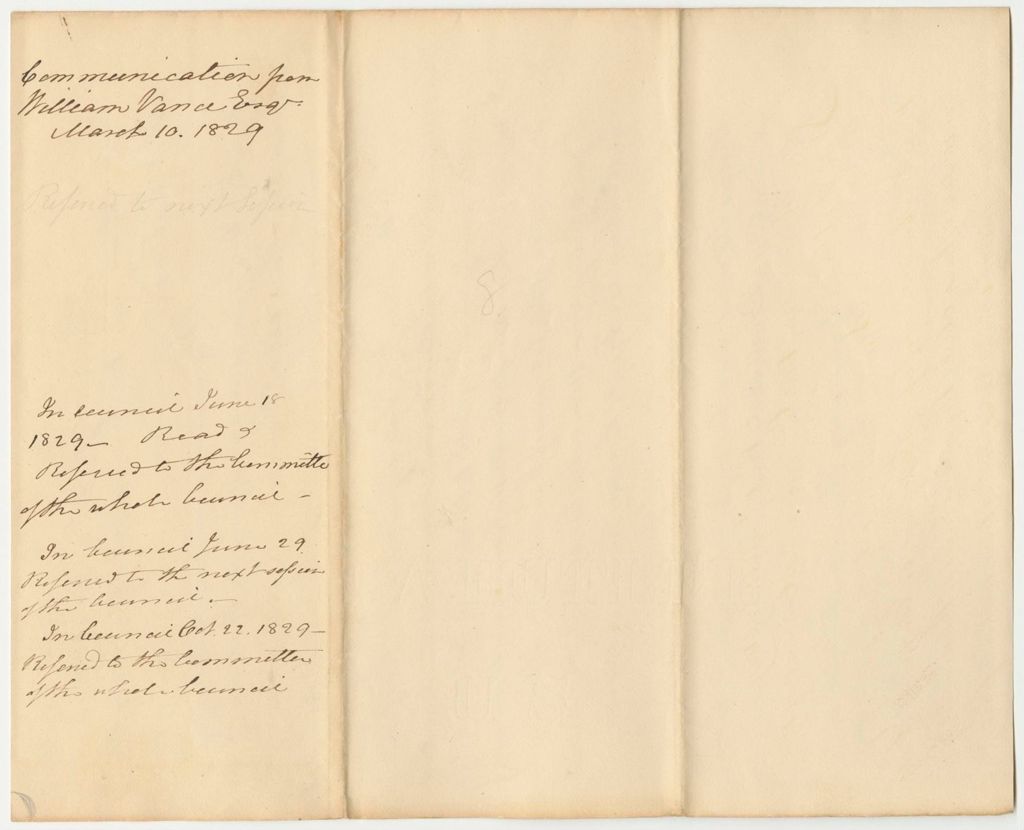 Communication from
William Vance Esqr.
March 10. 1829
Referred to next Session
8.
In council June 18
1829— Read &
Referred to the Committee
of the whole Council —
In Council June 29
Referred to the next session
of the Council. —
In Council Oct. 22. 1829—
Referred to the Committee
of the whole Council